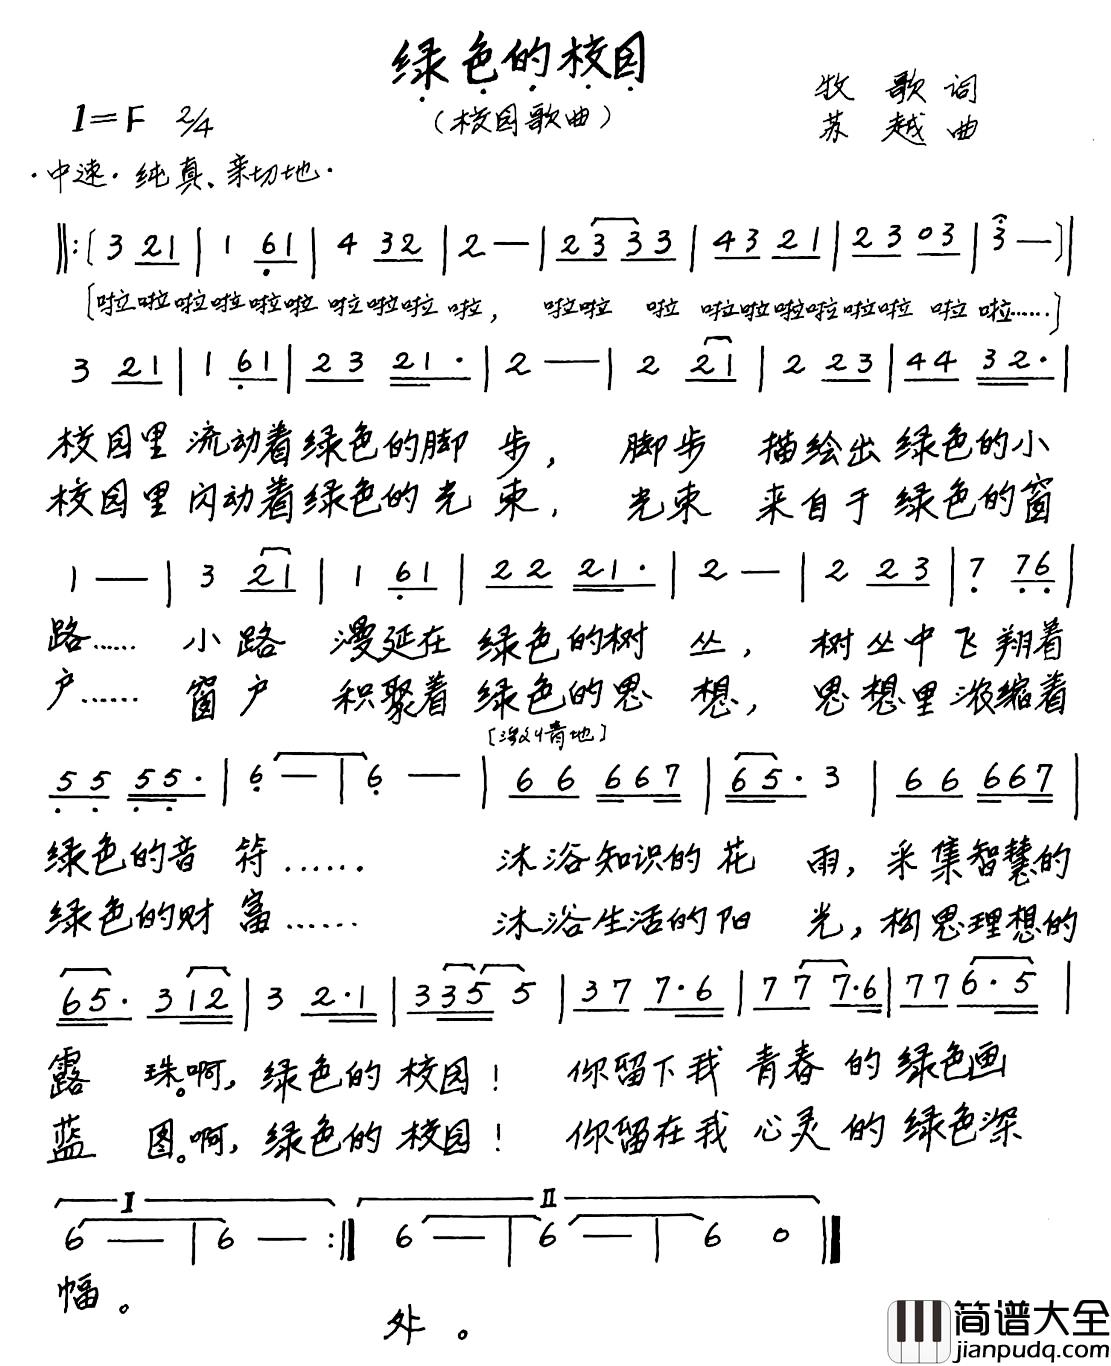 绿色的校园
(校园歌曲)
牧歌词
苏越曲
1=F 2/4
·中速·纯真、亲切地·
‖:〔3 21 | 1 61 | 4 32 | 2 — | 23 33 | 43 21 | 23 03 | 3 — 〕|
〔啦啦啦啦啦啦 啦啦啦 啦, 啦啦 啦 啦啦啦啦啦啦 啦 啦……〕
3 21 | 1 61 | 23 21· | 2 — | 2 21 | 2 23 | 44 32· |
校园里 流动着绿色的脚 步, 脚步 描绘出 绿色的小
校园里 闪动着绿色的光 束, 光束 来自于 绿色的窗
1 — | 3 21 | 1 61 | 22 21· | 2 — | 2 23 | 7 76 |
路…… 小路 漫延在 绿色的树 丛, 树丛中飞翔着
户…… 窗户 积聚着 绿色的思 想, 思想里浓缩着
[激情地]
55 55· | 6 — | 6 — | 66 667 | 65· 3 | 66 667 |
绿色的音 符…… 沐浴知识的花 雨, 采集智慧的
绿色的财 富…… 沐浴生活的阳 光, 构思理想的
65· 312 | 3 2·1 | 335 5 | 37 7·6 | 77 7·6 | 77 6·5 |
露 珠。啊, 绿色的 校园! 你留下我 青春 的 绿色画
蓝 图。啊, 绿色的 校园! 你留在我 心灵 的 绿色深
I II
6 — | 6 — :‖ 6 — | 6 — | 6 0 ‖
幅。
处。
简谱大全
jianpudq.com